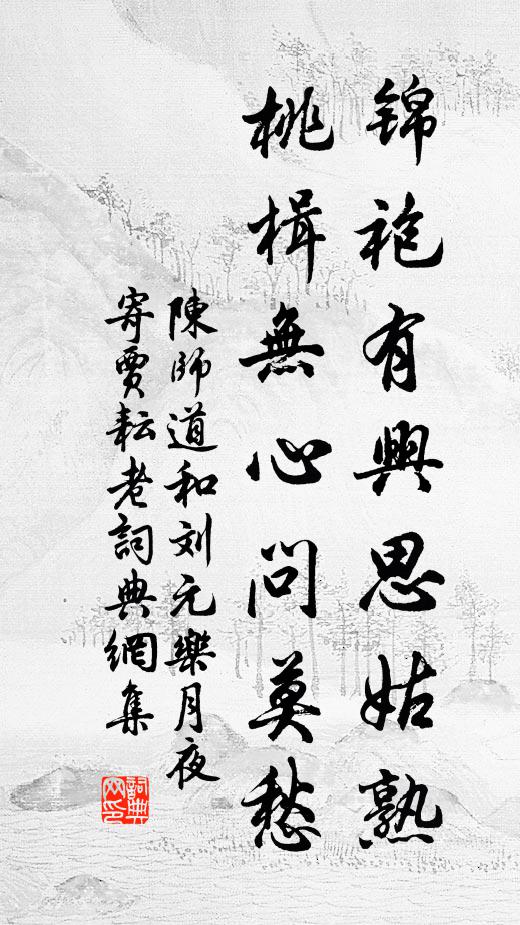 錦袍有興思姑熟
桃楫無心問莫愁
陳師道和刘元樂月夜
寄賈耘老詞典網集
詞典網印